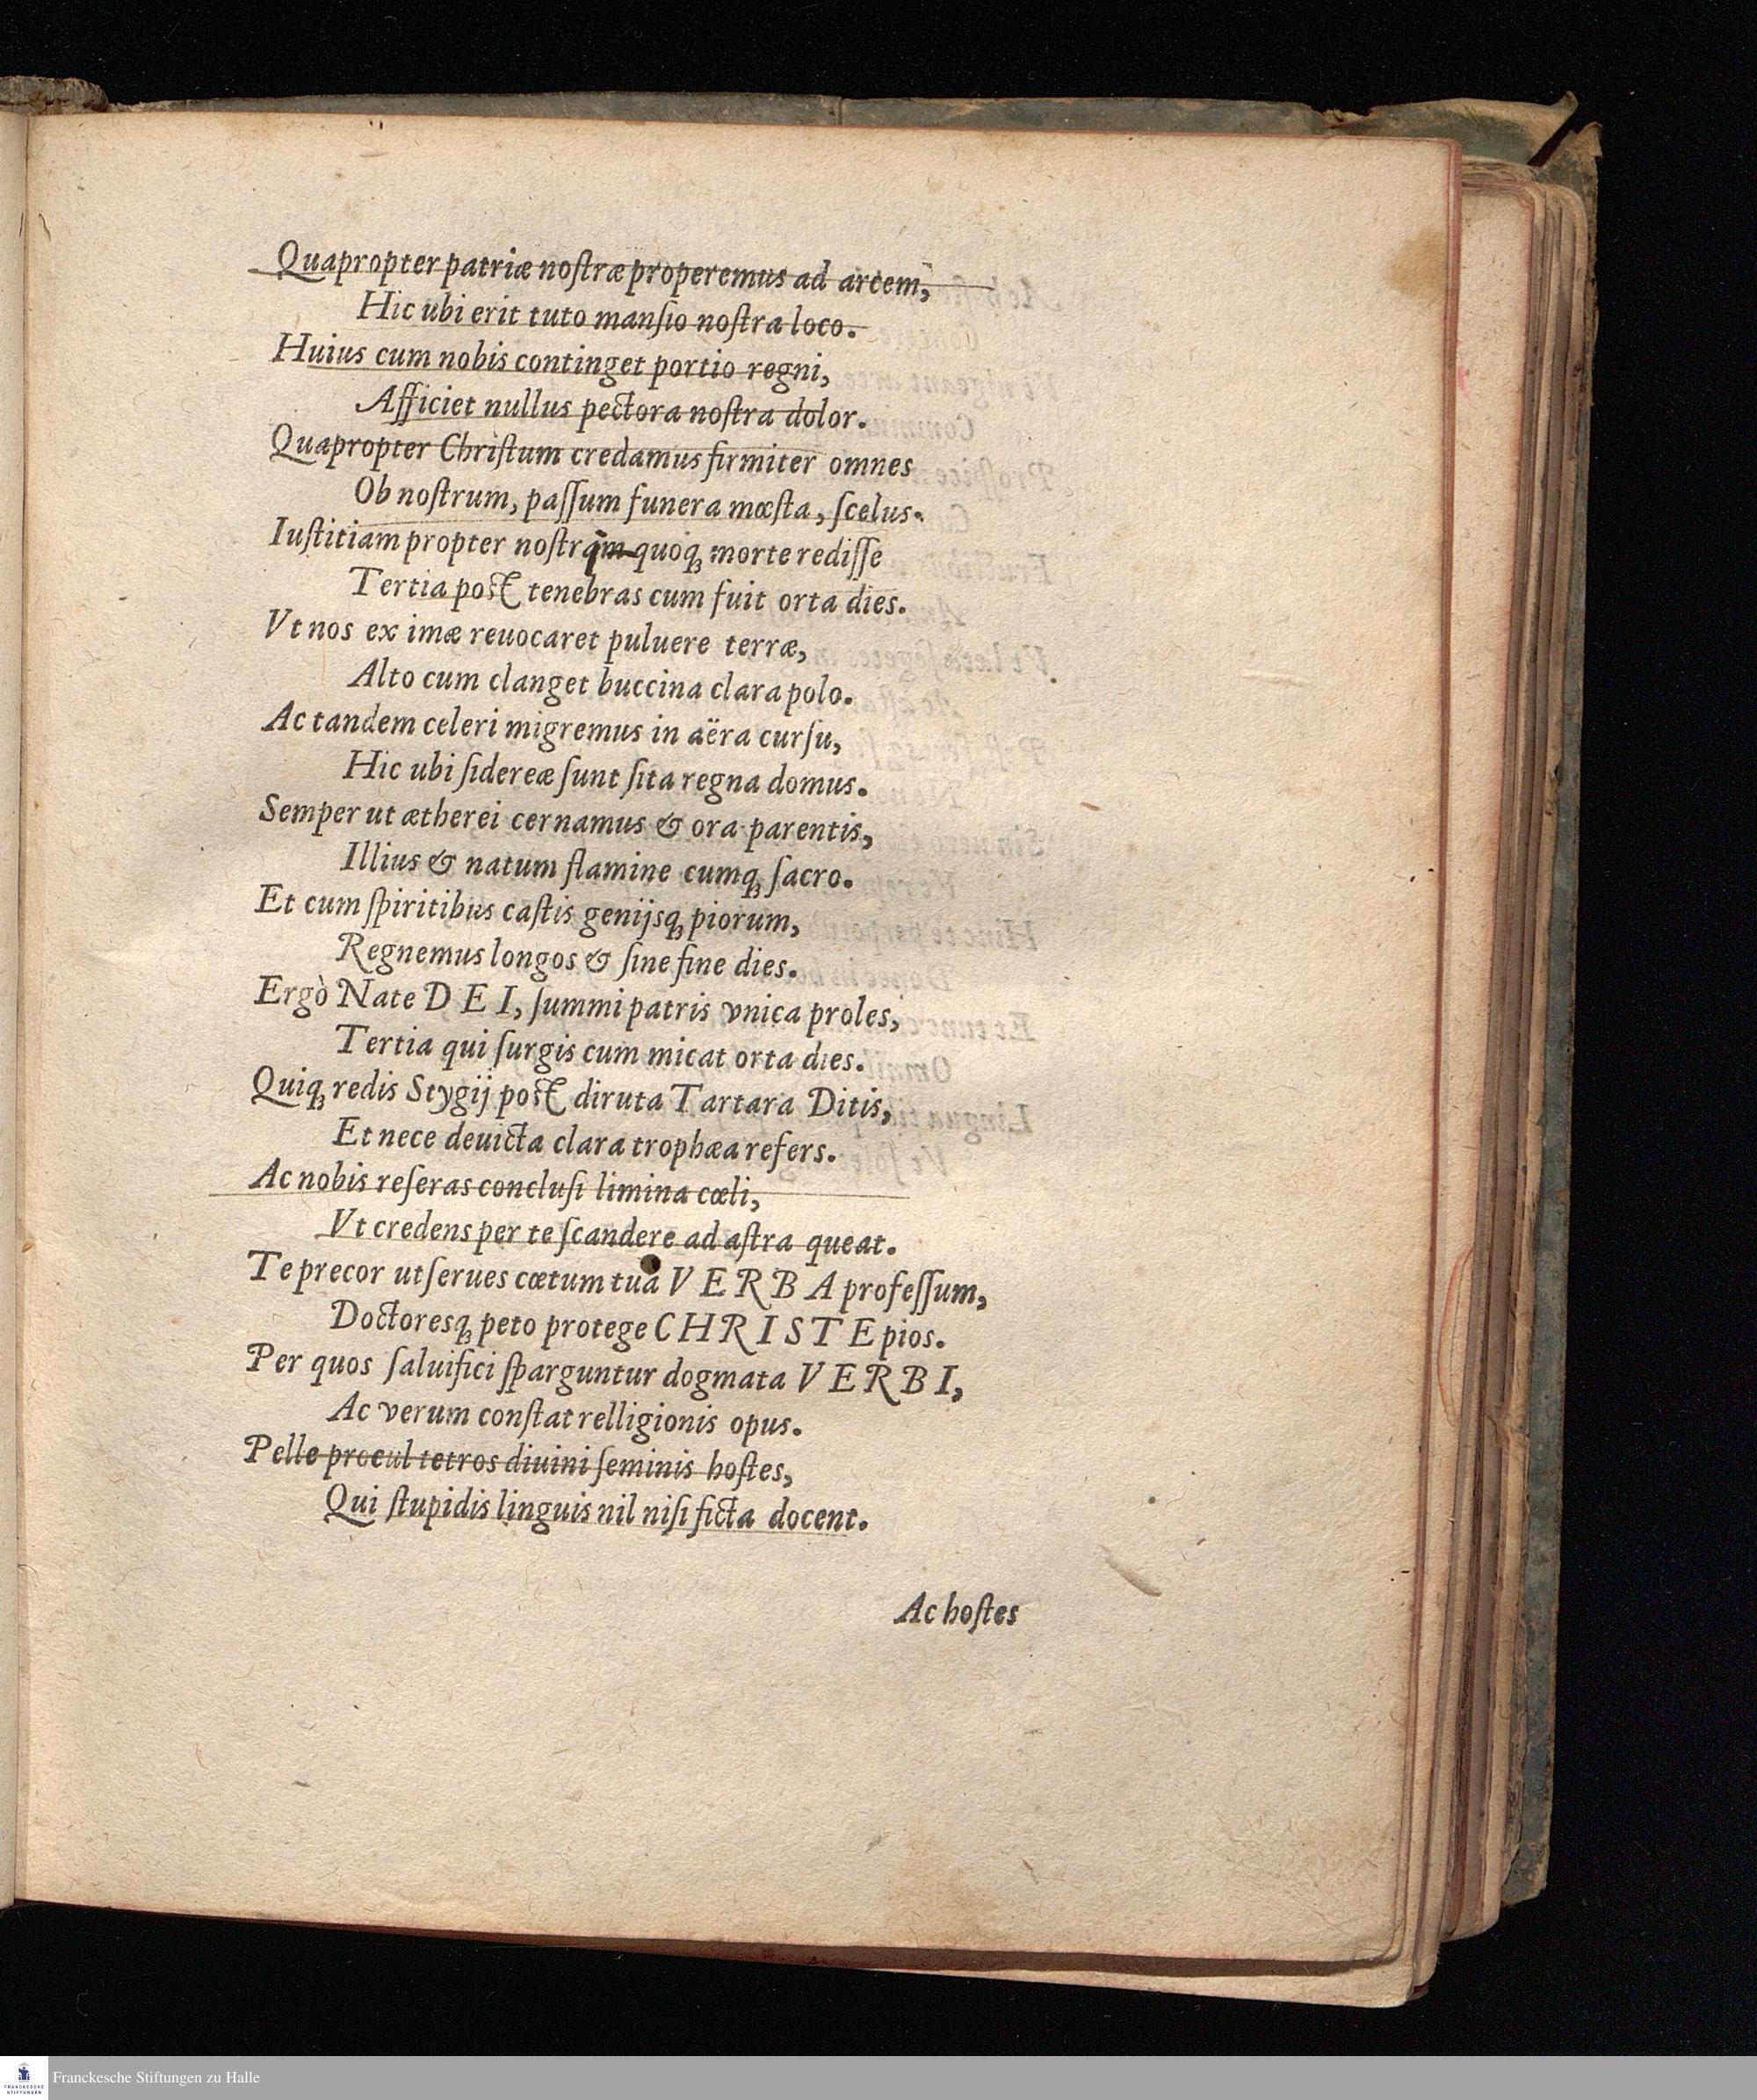 Quapropter patriæ noſtræ properemus ad arcem,
Hic ubi erit tuto manſio noſtra loco.
Huius cum nobis continget portio regni,
Afficiet nullus pectora noſtra dolor.
Quapropter Chriſtum credamus firmiter omnes
Ob noſtrum, paſſum funera mœſta, ſcelus.
Iuſtitiam propter noſtram quoqꝫ morte rediſſe
Tertia poſt tenebras cum fuit orta dies.
Vt nos ex imæ reuocaret puluere terræ,
Alto cum clanget buccina clara polo.
Ac tandem celeri migremus in aëra curſu,
Hic ubi ſidereæ ſunt ſita regna domus.
Semper ut ætherei cernamus & ora parentis,
Illius & natum flamine cumqꝫ ſacro.
Et cum ſpiritibus caſtis genijsqꝫ piorum,
Regnemus longos & ſine fine dies.
Ergò Nate D E I, ſummi patris vnica proles,
Tertia qui ſurgis cum micat orta dies.
Quiqꝫ redis Stygij poſt diruta Tartara Ditis,
Et nece deuicta clara trophæa refers.
Ac nobis reſeras concluſi limina cœli,
Vt credens per te ſcandere ad aſtra queat.
Te precor ut ſerues cœtum tua V E R B A profeſſum,
Doctoresqꝫ peto protege C H R I S T E pios.
Per quos ſaluifici ſparguntur dogmata V E R B I,
Ac verum conſtat relligionis opus.
Pelle procul tetros diuini ſeminis hoſtes,
Qui ſtupidis linguis nil niſi ficta docent.
Ac hoſtes
Franckesche Stiftungen zu Halle
FRANCKESCHE
STIFTUNGEN